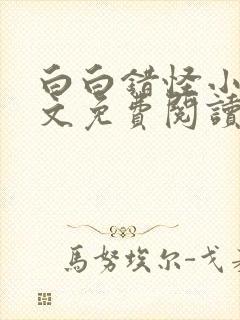 白白錯怪小
文免費閱讀
馬努埃尔-戈